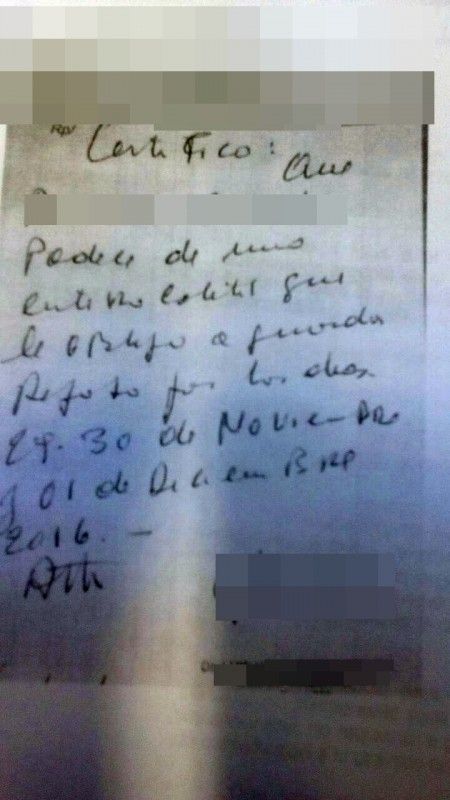 Rp/
Certifico: Que
Padece de una
entero colitis que
le obligo a guardar
Reposo por los dias
29.30 de Noviembre
y 01 de Diciembre
2016. -